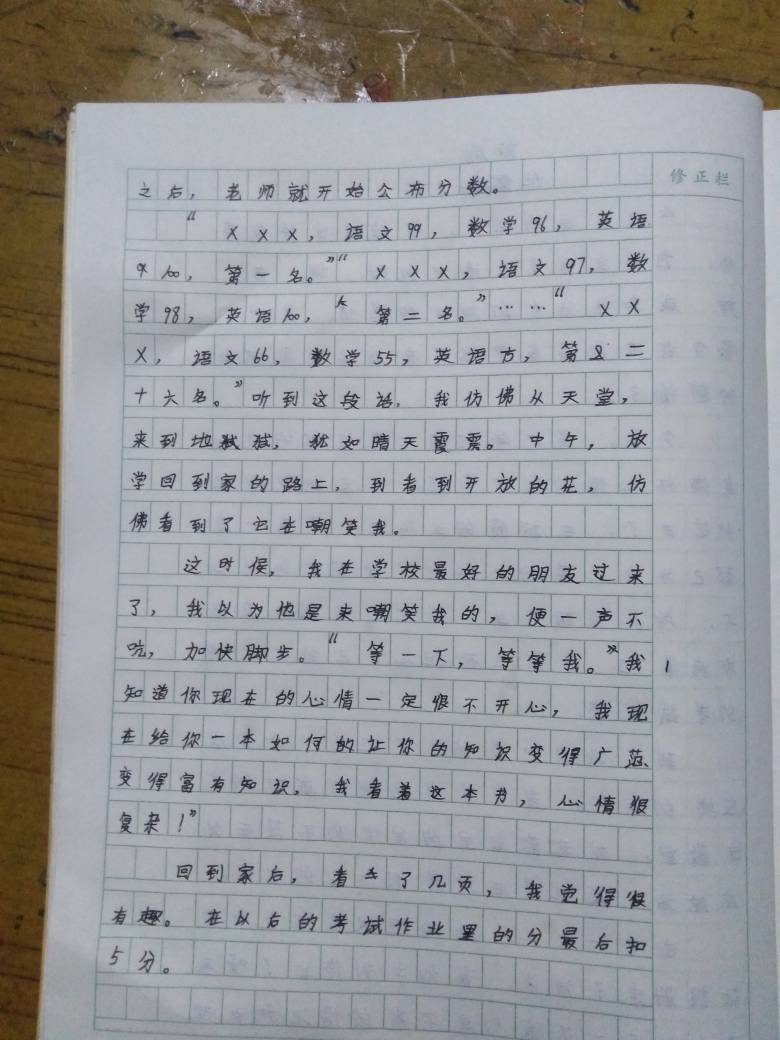 修正栏
之后，老师就开始公布分数。
“XXX，语文99，数学96，英语
100，第一名。”“XXX，语文97，数
学98，英语100，第二名。”……“XX
X，语文66，数学55，英语方，第二
十六名。”听到这段话，我仿佛从天堂，
来到地狱，犹如晴天霞震。中午，放
学回到家的路上，到看到开放的花，仿
佛看到了它在嘲笑我。
这时候，我在学校最好的朋友过来
了，我以为他是来嘲笑我的，便一声不
吭，加快脚步。“等一下，等等我。”我
知道你现在的心情一定很不开心，我现
在给你一本如何的让你的知识变得广范、
变得富有知识，我看着这本书，心情很
复杂！”
回到家后，看了几页，我觉得很
有趣。在以后的考试作业里的分最后扣
5分。